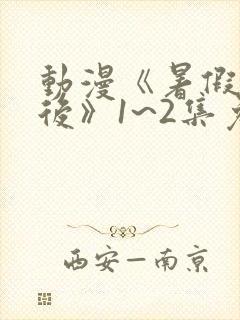 動漫《暑假
後》1~2集
西安—南京